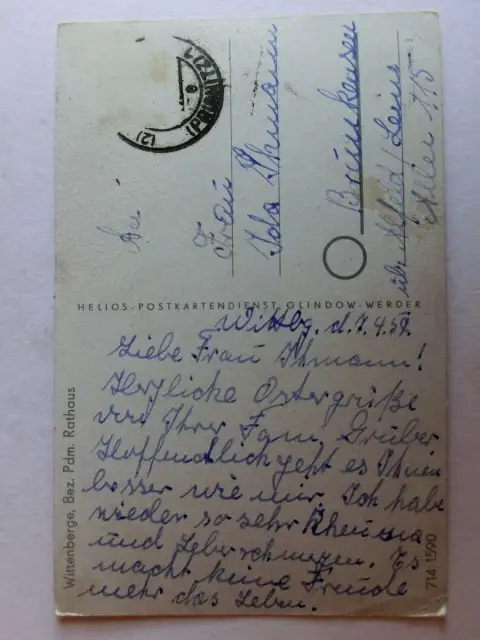 (2) (PRIGNITZ) 1
An
Frau
Ida Ihmann
Brunkensen
üb. Alfeld / Leine
HELIOS-POSTKARTENDIENST GLINDOW-WERDER
Wittbg. d. 7.4.59.
Liebe Frau Ihmann!
Herzliche Ostergrüße
von Ihrer Fam. Gruber
Hoffendlich geht es Ihnen
besser wie mir. Ich habe
wieder so sehr Rheuma
und Leberschmerzen. Es
macht keine Freude
mehr das Leben.
Wittenberge, Bez. Pdm. Rathaus
714 1590